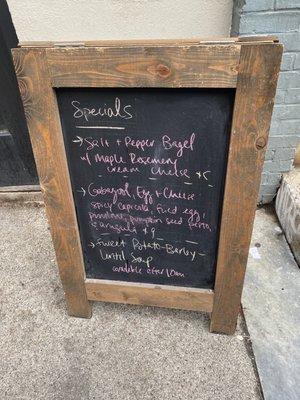 Specials
→ Salt + Pepper Bagel
w/ Maple Rosemary
cream cheese
→ Gabagool, Egg + Cheese
spicy capicola, fried egg,
provolone, pumpkin seed pesto,
+ arugula
→ Sweet Potato-Barley
Lentil Soup
(available after 10am)